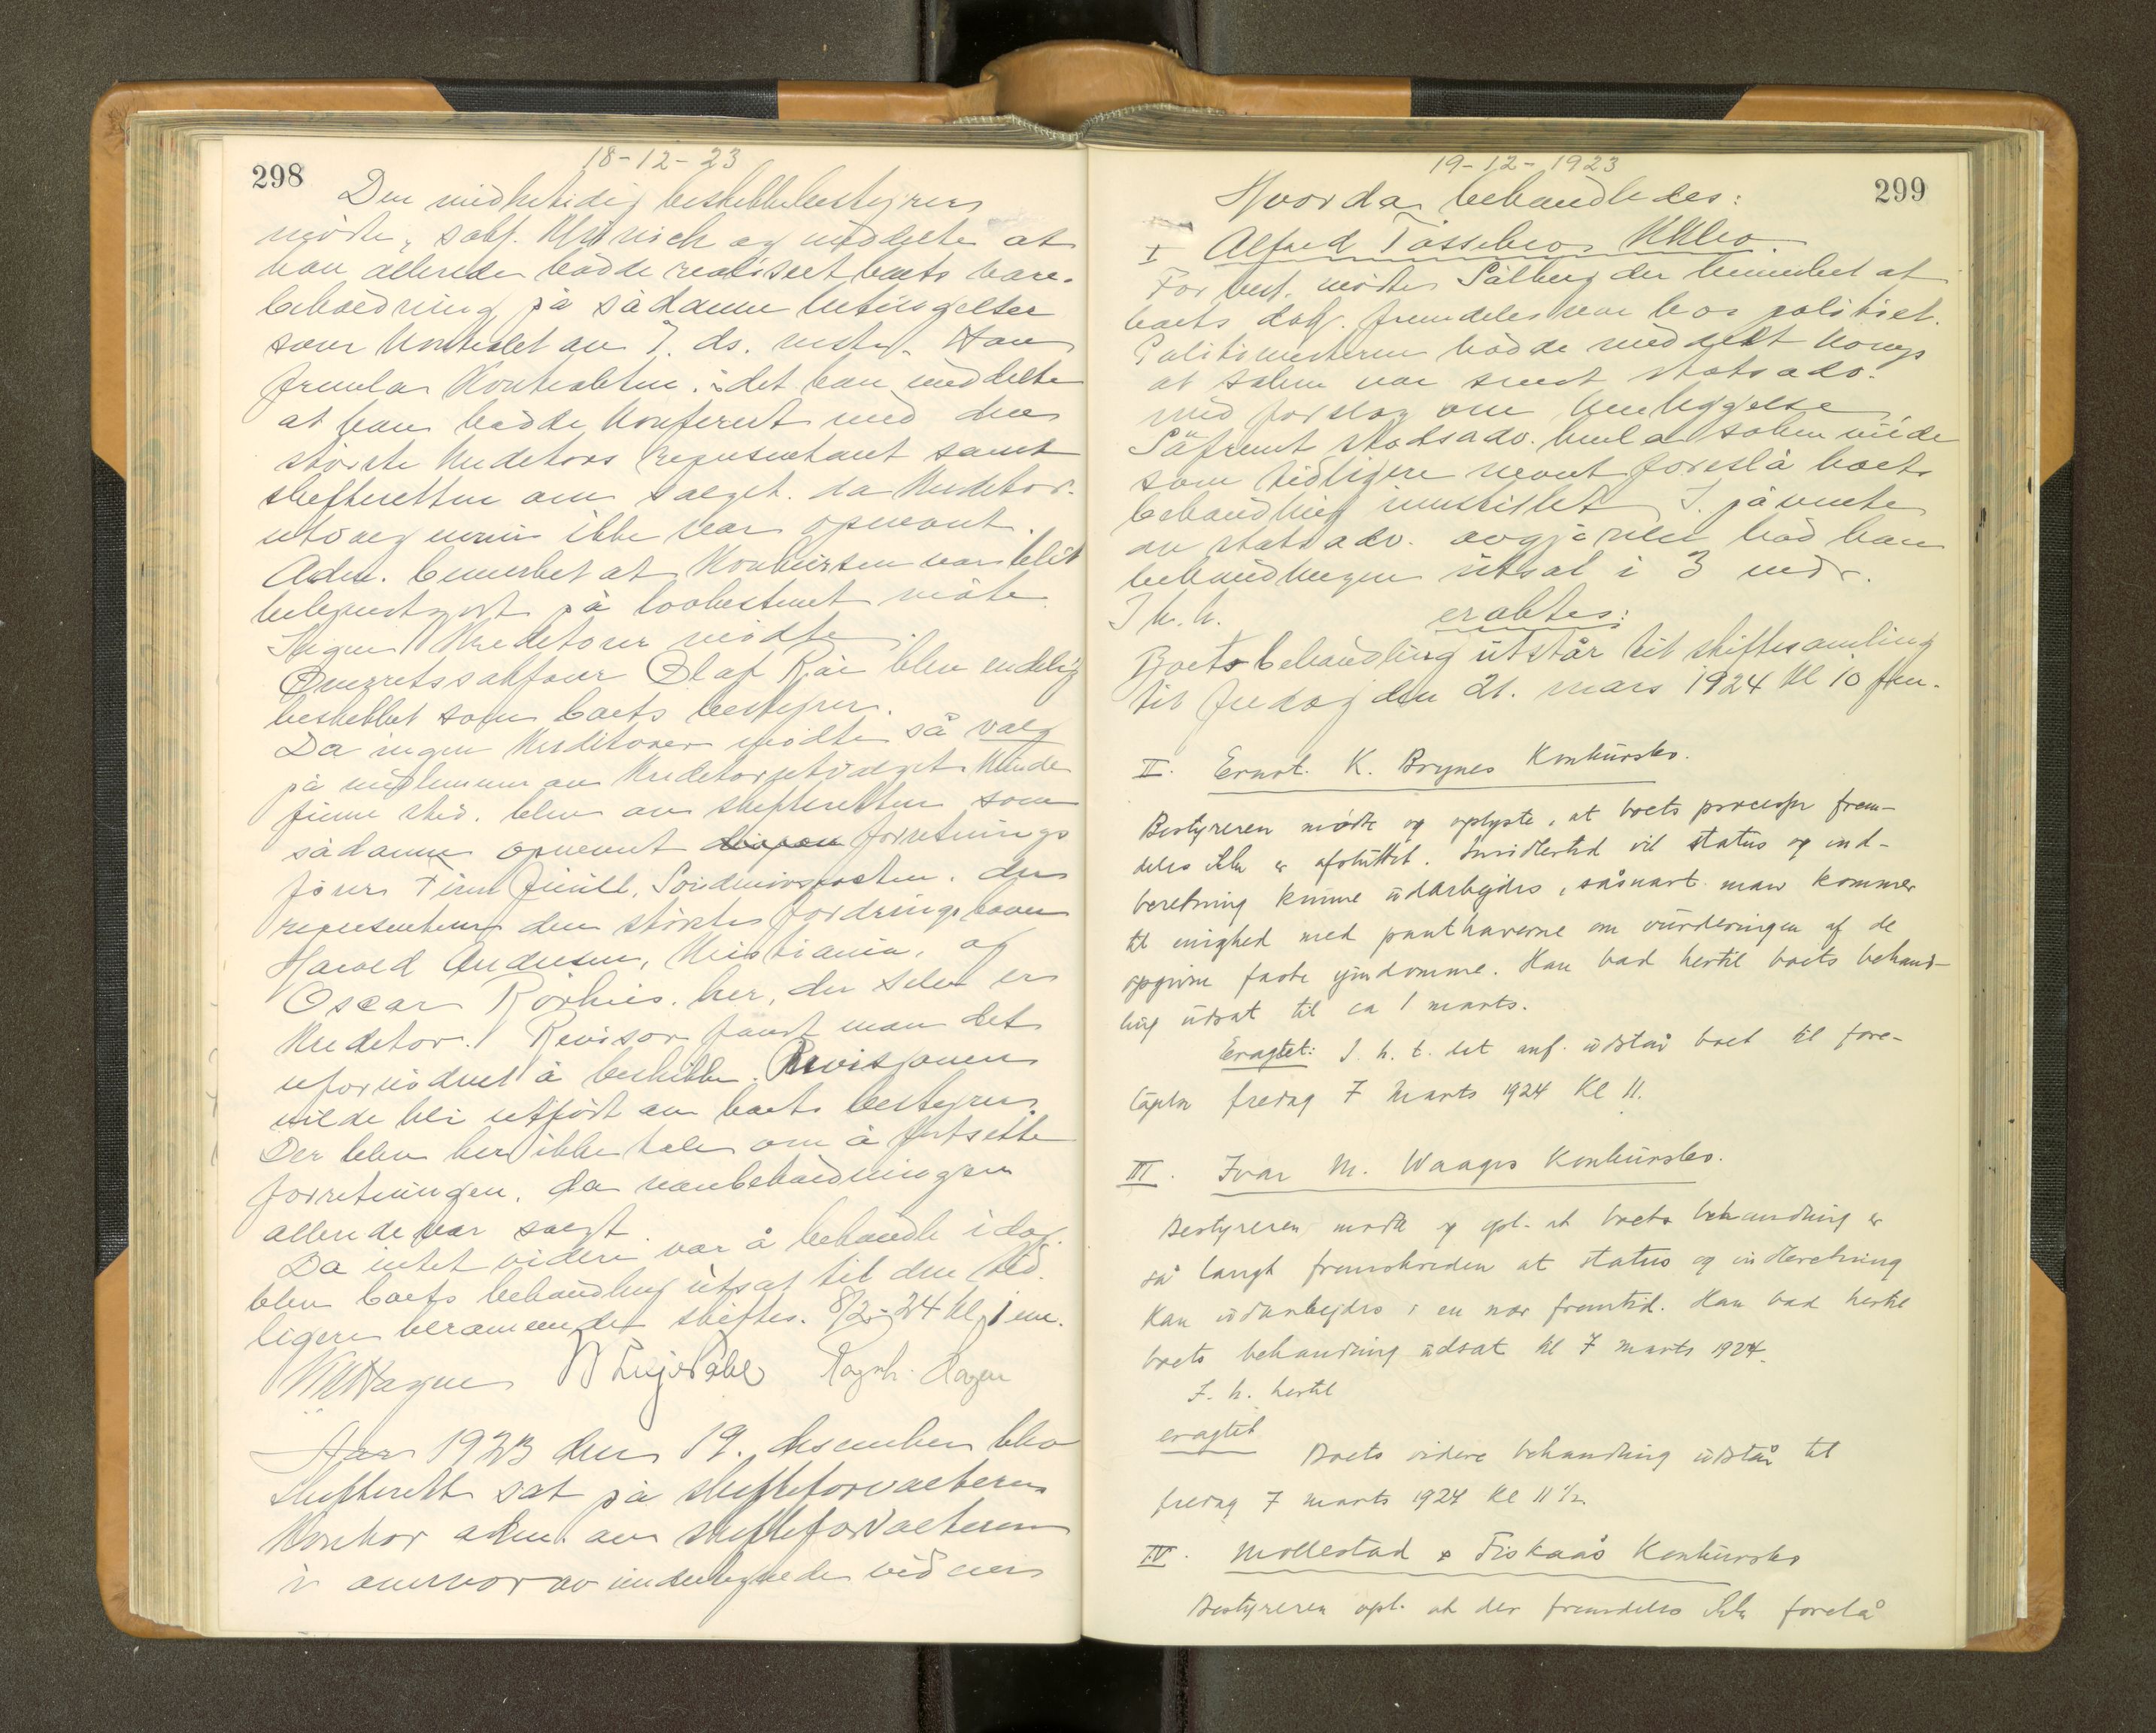 298
18-12-23
Den midlertidig beskikkede bestyrer
møtte, sakf. Münich og meddelte at
han allerede hadde realisert boets vare-
beholdning på sådanne betingelser
som kontrakt av 7. ds. viste. Han
fremla kontrakten. det han meddelte
at han hadde konferert med den
største kreditors representant samt
skifteretten om salget. da kreditor-
utvalg ennu ikke var opnevnt.
Adm. bemerket at konkursen var blit
bekjentgjort på lovbestemt måte.
Ingen kreditorer møtte.
Overretssakfører Olaf Røe blev endelig
beskikket som boets bestyrer.
Da ingen kreditorer møtte så valg
på medlemmer av kreditorutvalget kunde
finne sted. blev av skifteretten som
sådanne opnevnt forretnings
fører Finn Juell, Søndmørsposten. der
representerer den største fordringshaver
Harald Andersen, Kristiania. og
Oscar Rörhus. her, der selv er
kreditor. Revisor fandt man det
ufornødent å beskikke. Revisjonen
vilde bli utført av boets bestyrer.
Der blev her ikke tale om å fortsette
forretningen. da varebeholdningen
allerede var solgt.
Da intet videre var å behandle idag.
blev boets behandling utsat til den tid.
ligere berammede skiftes. 8/2-24 kl. 1 em.
Ragnh. Hagen
Aar 1923 den 19. desember blev
skifterett sat på skifteforvalterens
kontor adm. av skifteforvalteren
i overvær av undertegnede vidner
19-12-1923
299
Hvorda behandledes:
I Alfred Tassebros Kkbo.
For best. møtte Sålberg der bemerket at
boets dok. fremdeles var hos politiet.
Politimesteren hadde meddelt
at saken var sendt statsadv.
med forslag om henleggelse.
Såfremt statsadv. henla saken vilde
som tidligere nevnt foreslå boets
behandling innstillet. I påvente
av statsadv. avgjørelse bad han
behandlingen utsat i 3 mdr.
I h. h. eraktes:
Boets behandling utstår til skiftesamling
til fredag den 21. mars 1924 kl 10 fm.
II. Ernst. K. Brynes Konkursbo.
Bestyreren mødte og oplyste, at boets processer frem-
deles ikke er afsluttet. Imidlertid vil status og ind-
beretning kunne udarbeides, såsnart man kommer
til enighed med panthaverne om vurderingen af de
opgivne faste ejendomme. Han bad hertil boets behand-
ling udsat til ca 1 marts.
Eragtet: I. h. t. det anf. udstår boet til fore-
tagelse fredag 7 Marts 1924 Kl 11.
III. Ivar M. Waages Konkursbo.
Bestyreren mødte og opl. at boets behandling er
så langt fremskreden at status og indberetning
kan udarbejdes i en nær fremtid. Han bad hertil
boets behandling udsat til 7 marts 1924.
I. h. hertil
eragtet
Boets videre behandling udstår til
fredag 7 marts 1924 kl 11 1/2
IV. Mollestad & Fiskaas Konkursbo
Bestyreren opl. at der fremdeles ikke forelå